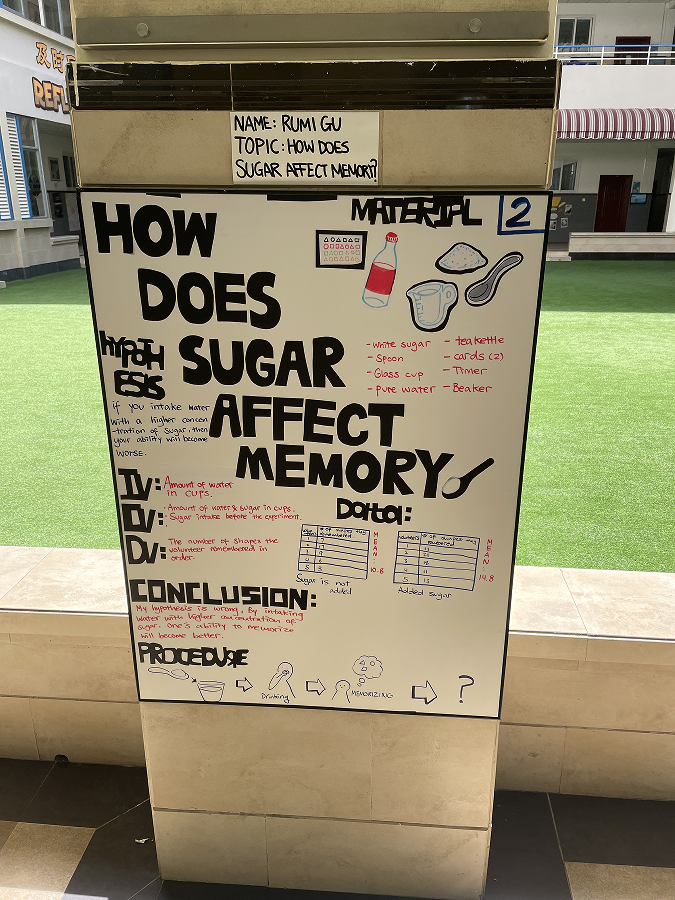 NAME: RUMI GU
TOPIC: HOW DOES
SUGAR AFFECT MEMORY?
HOW
DOES
SUGAR
AFFECT
MEMORY
MATERIAL
2
- white sugar
- Spoon
- Glass cup
- pure water
- teakettle
- cards (2)
- Timer
- Beaker
HYPOTH
ESIS
if you intake water
with a higher concen
-tration of sugar, then
your ability will become
worse.
IV: Amount of water
in cups.
CV: Amount of water & sugar in cups.
Sugar intake before the experiment.
DV: The number of shapes the
volunteer remembered in
order.
Data:
MEAN: 10.8
Sugar is not
added
MEAN: 14.8
Added sugar
CONCLUSION:
My hypothesis is wrong. By intaking
water with higher concentration of
sugar. one's ability to memorize
will become better.
PROCEDURE
Drinking
MEMORIZING
?